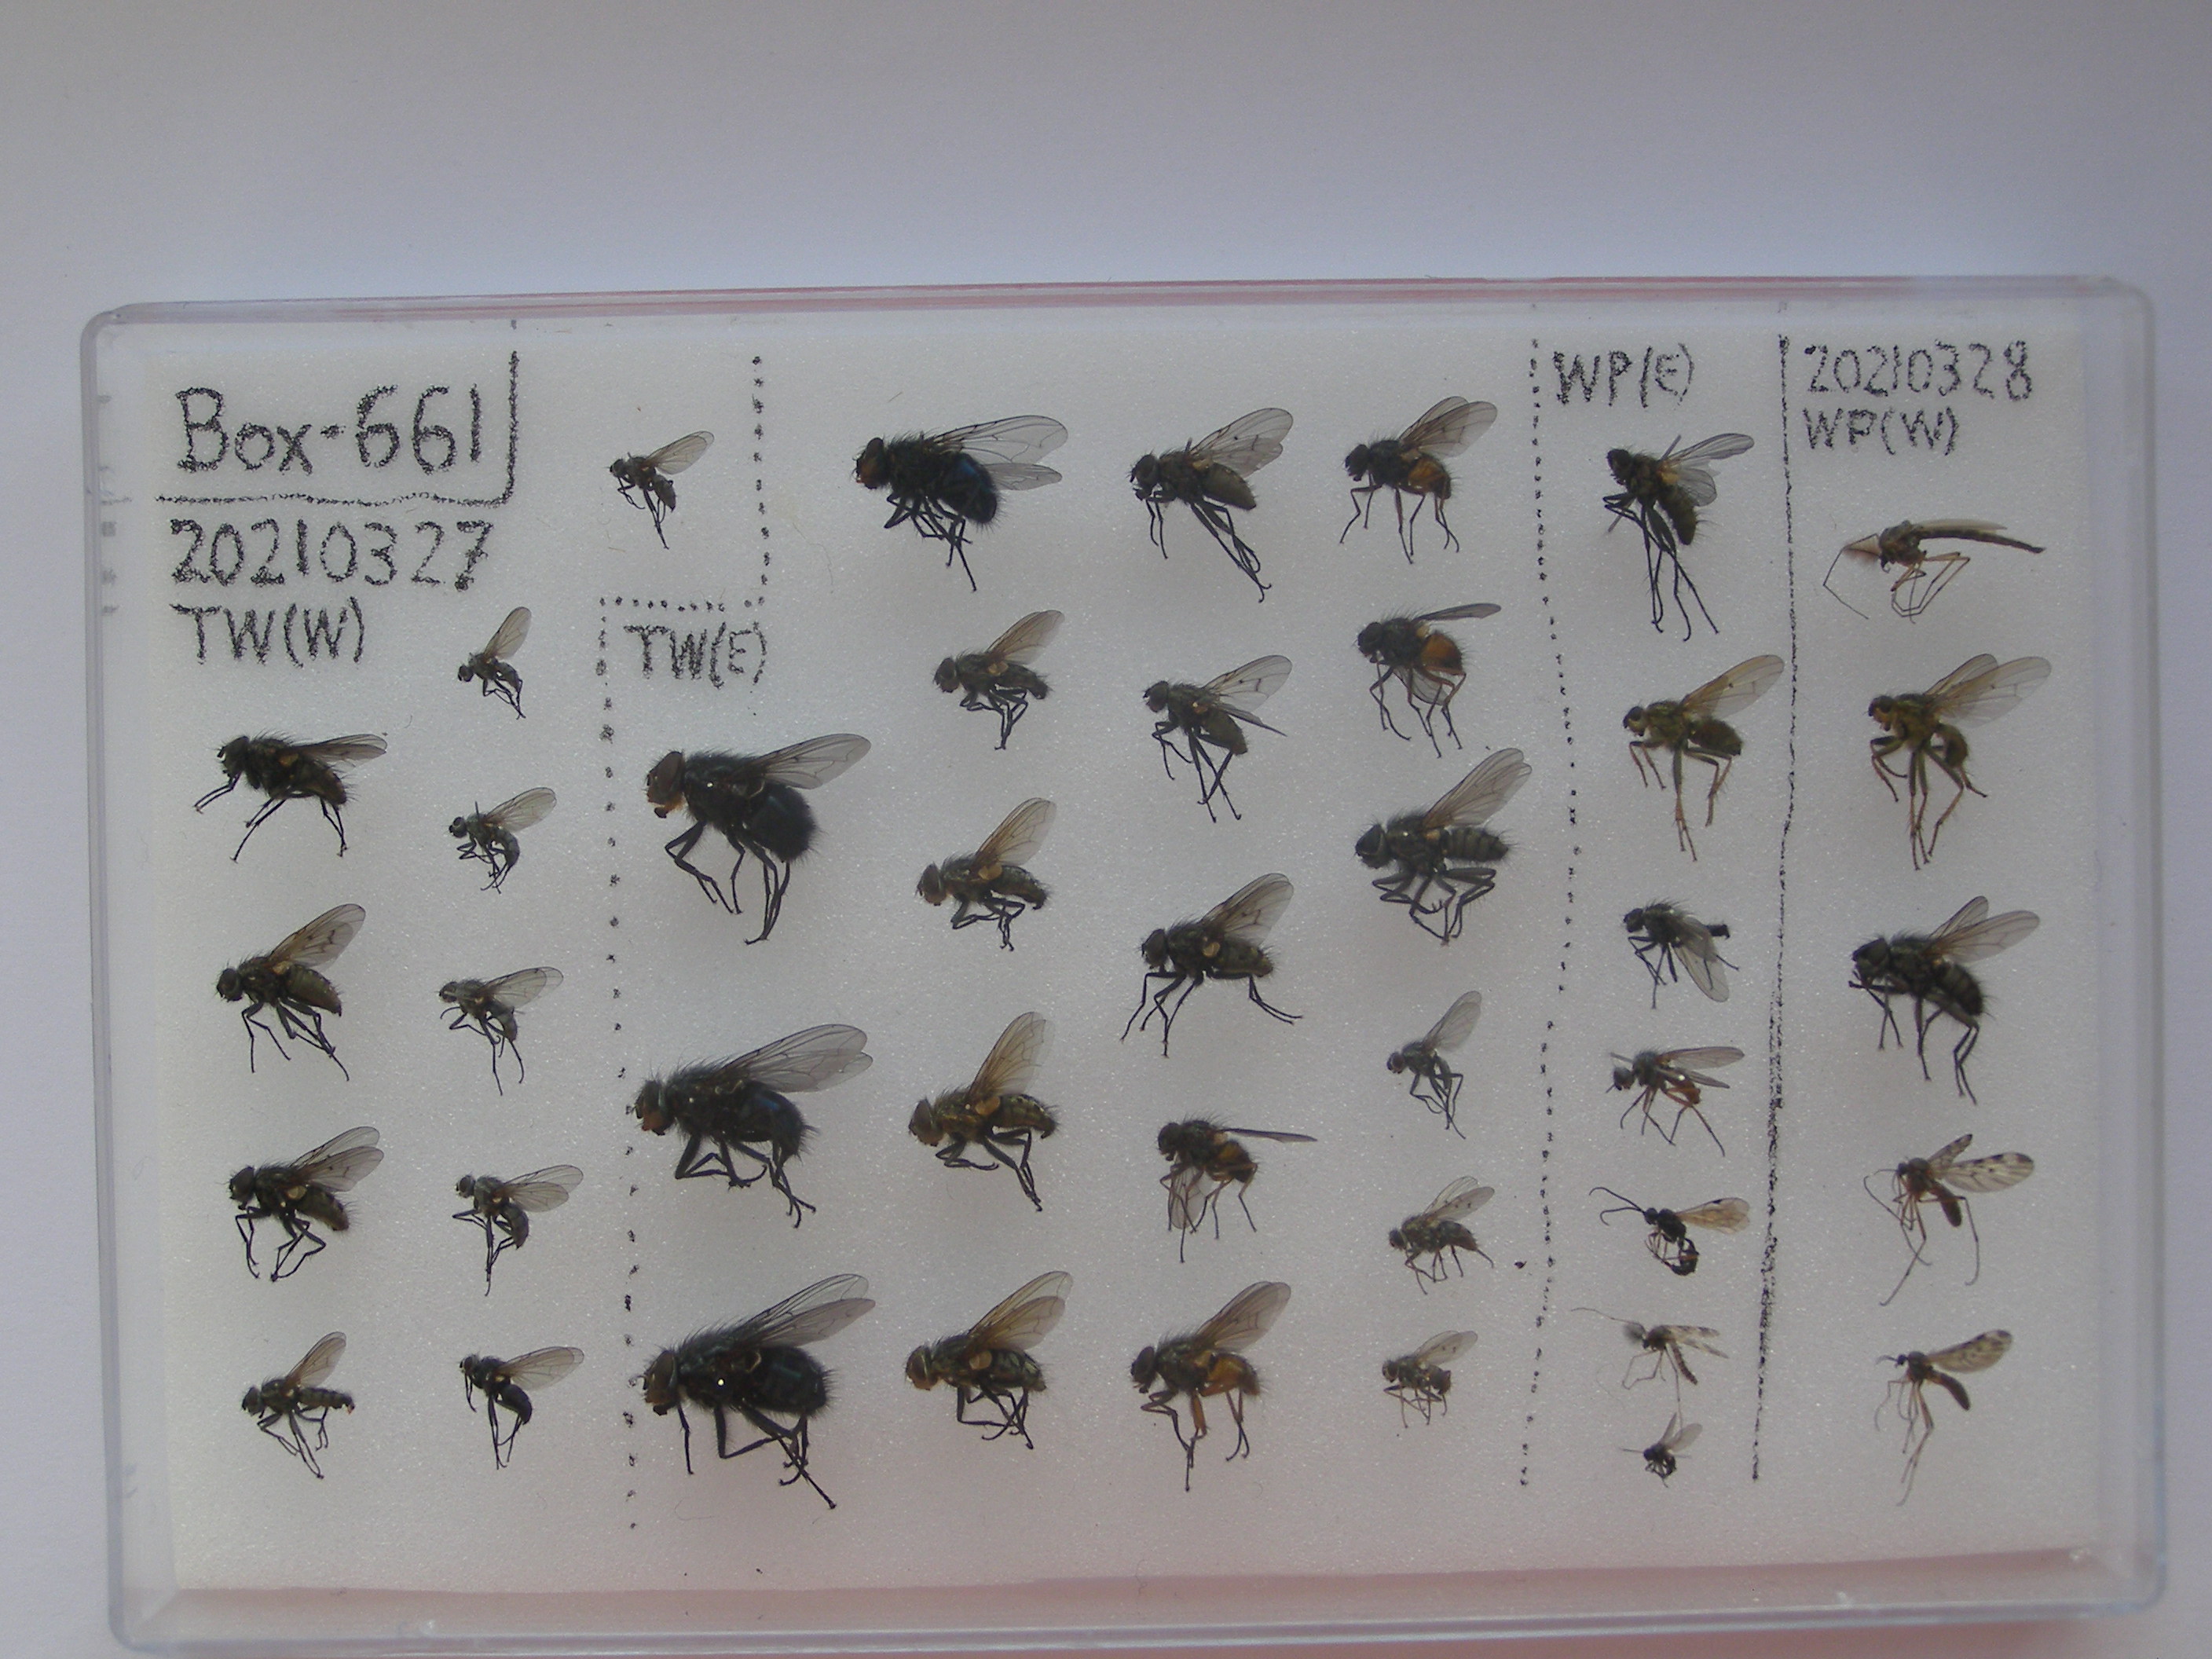 Box-661
20210327
TW(W)
TW(E)
WP(E)
20210328
WP(W)